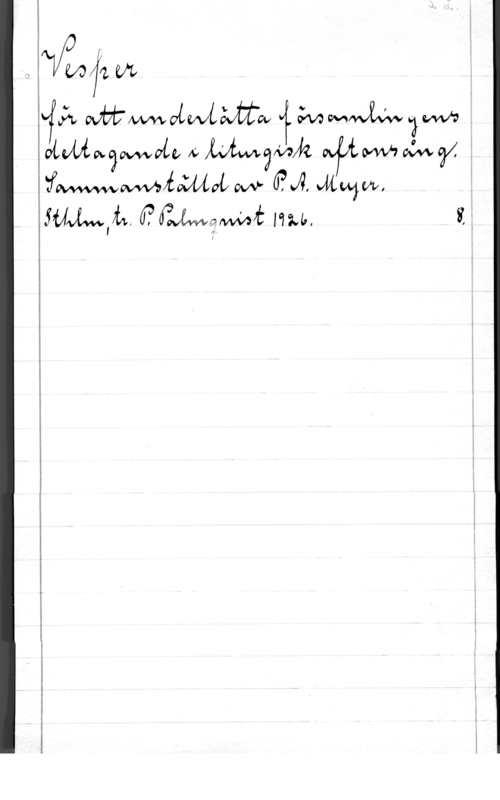 Vesper
för att underlätta församlingens
deltagande i liturgisk aftonsång.
Sammanställd av P. A. Meyer.
Sthlm, tr. P. Palmquist 1926. 8.